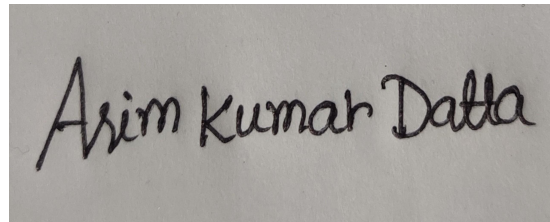 Asim Kumar Datta